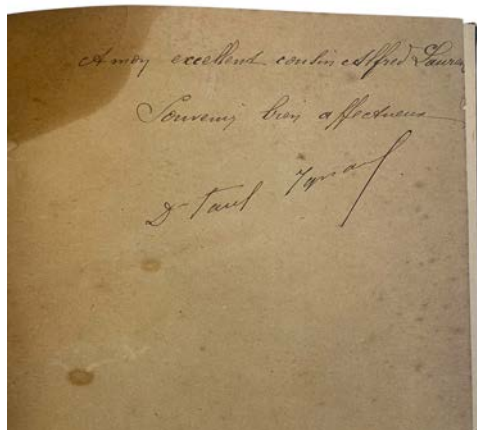 A mon excellent cousin Alfred
Souvenir bien affectueux
Dr Paul